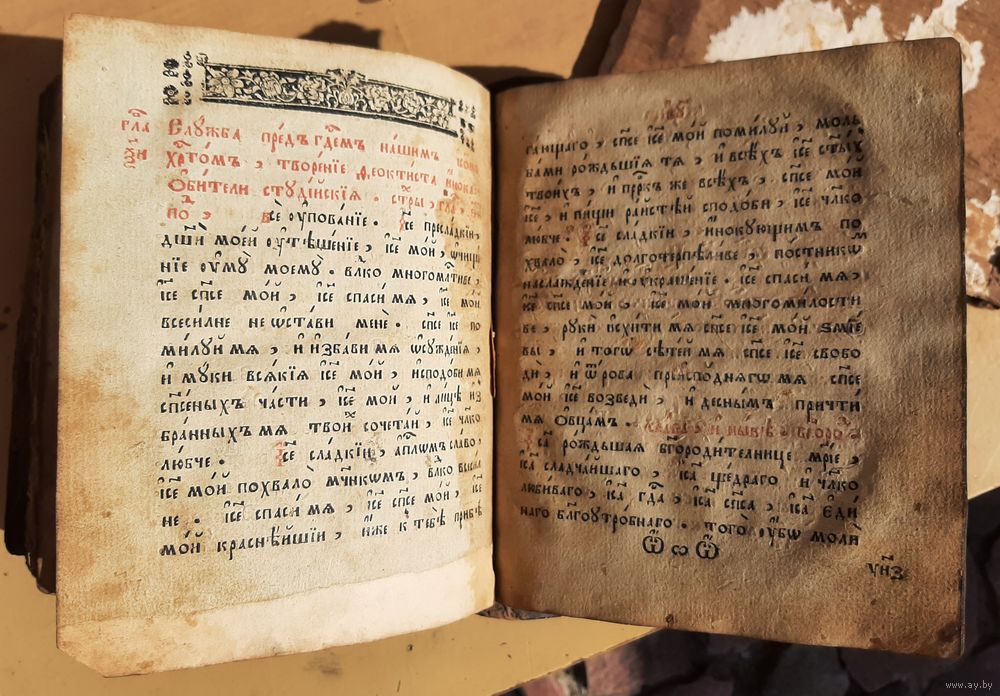 гла
Слꙋжба прⷣедъ гдⷭ҇емъ нашимъ
хрⷭ҇томъ , творенїе ѳеоктиста инока
Обители стꙋдїискїѧ .
по ,
і҆се ᲂу҆пованїе . І҆се пресладкїи ,
дш҃и мᲂе́й ᲂу҆тѣшенїе , і҆с҃е мой ,
нїе ᲂу҆мꙋ̀ моемꙋ̀ . влⷣко многомлⷭ҇тиве ,
і҆с҃е сп҃се мо́й , і҆с҃е спаси́ мѧ , і҆с҃е мой
всеси́лне не ѡ҆ста́ви менѐ . сп҃се і҆с҃е по
ми́лꙋй мѧ , и҆ и҆зба́ви мѧ ѡ҆сꙋжде́нїѧ ,
и҆ мꙋ́ки всѧ́кїѧ і҆с҃е мо́й , и҆ сподо́би мѧ
сп҃се́ныхъ ча́сти , і҆с҃е мо́й , и҆ ли́цѣ и҆з
бра́нныхъ мѧ твои́хъ сочета́й , і҆с҃е чл҃ко
лю́бче . І҆с҃е сла́дкїи , а҆пⷭ҇лѡмъ сла́во ,
і҆с҃е мо́й похвало̀ мч҃нкѡмъ , влⷣко всеси́л
не . і҆с҃е спаси́ мѧ , і҆с҃е сп҃се мо́й , і҆с҃е
мо́й краснѣ́йшїи , и҆́же к тебѣ̀ прибѣ
га́ющаго , сп҃се і҆с҃е мо́й поми́лꙋй , моль
ба́ми рождьшїѧ тѧ̀ , и҆ всѣ́хъ і҆с҃е ст҃ы́хъ
твои́хъ , и҆ прⷪ҇ркъ же всѣ́хъ , сп҃се мо́й
і҆с҃е , и҆ пи́щи ра́йстѣй сподо́би , і҆с҃е чл҃ко
лю́бче . І҆с҃е сла́дкїи , и҆́нокꙋющимъ по
хва́ло , і҆с҃е долготерпѣли́ве , по́стникѡ
наслажде́нїе и҆ ᲂу҆краше́нїе . і҆с҃е спаси́ мѧ ,
і҆с҃е сп҃се мо́й , і҆с҃е мо́й многоми́лости
ве , рꙋки̑ и҆схи́ти мѧ сп҃се і҆с҃е мо́й ѕмїе
вы̀ , и҆ тогѡ̀ сѣте́й мѧ , сп҃се і҆с҃е свобо
дѝ , и҆ ѿ ро́ва преиспо́днѧгѡ мѧ , сп҃се
мо́й і҆с҃е возведѝ , и҆ десны́мъ причти́
мѧ ѻ҆вца́мъ . и҆ ны́нѣ , бг҃оро
І҆с҃а ро́ждьшаѧ бг҃ороди́телнице мр҃і́е ,
і҆с҃а сладча́йшаго , і҆с҃а ще́драго и҆ чл҃ко
люби́ваго , і҆с҃а гдⷭ҇а , і҆с҃а сп҃са , і҆с҃а є҆ди́
наго бл҃гоꙋтро́бнаго . того̀ ᲂу҆́бѡ молѝ